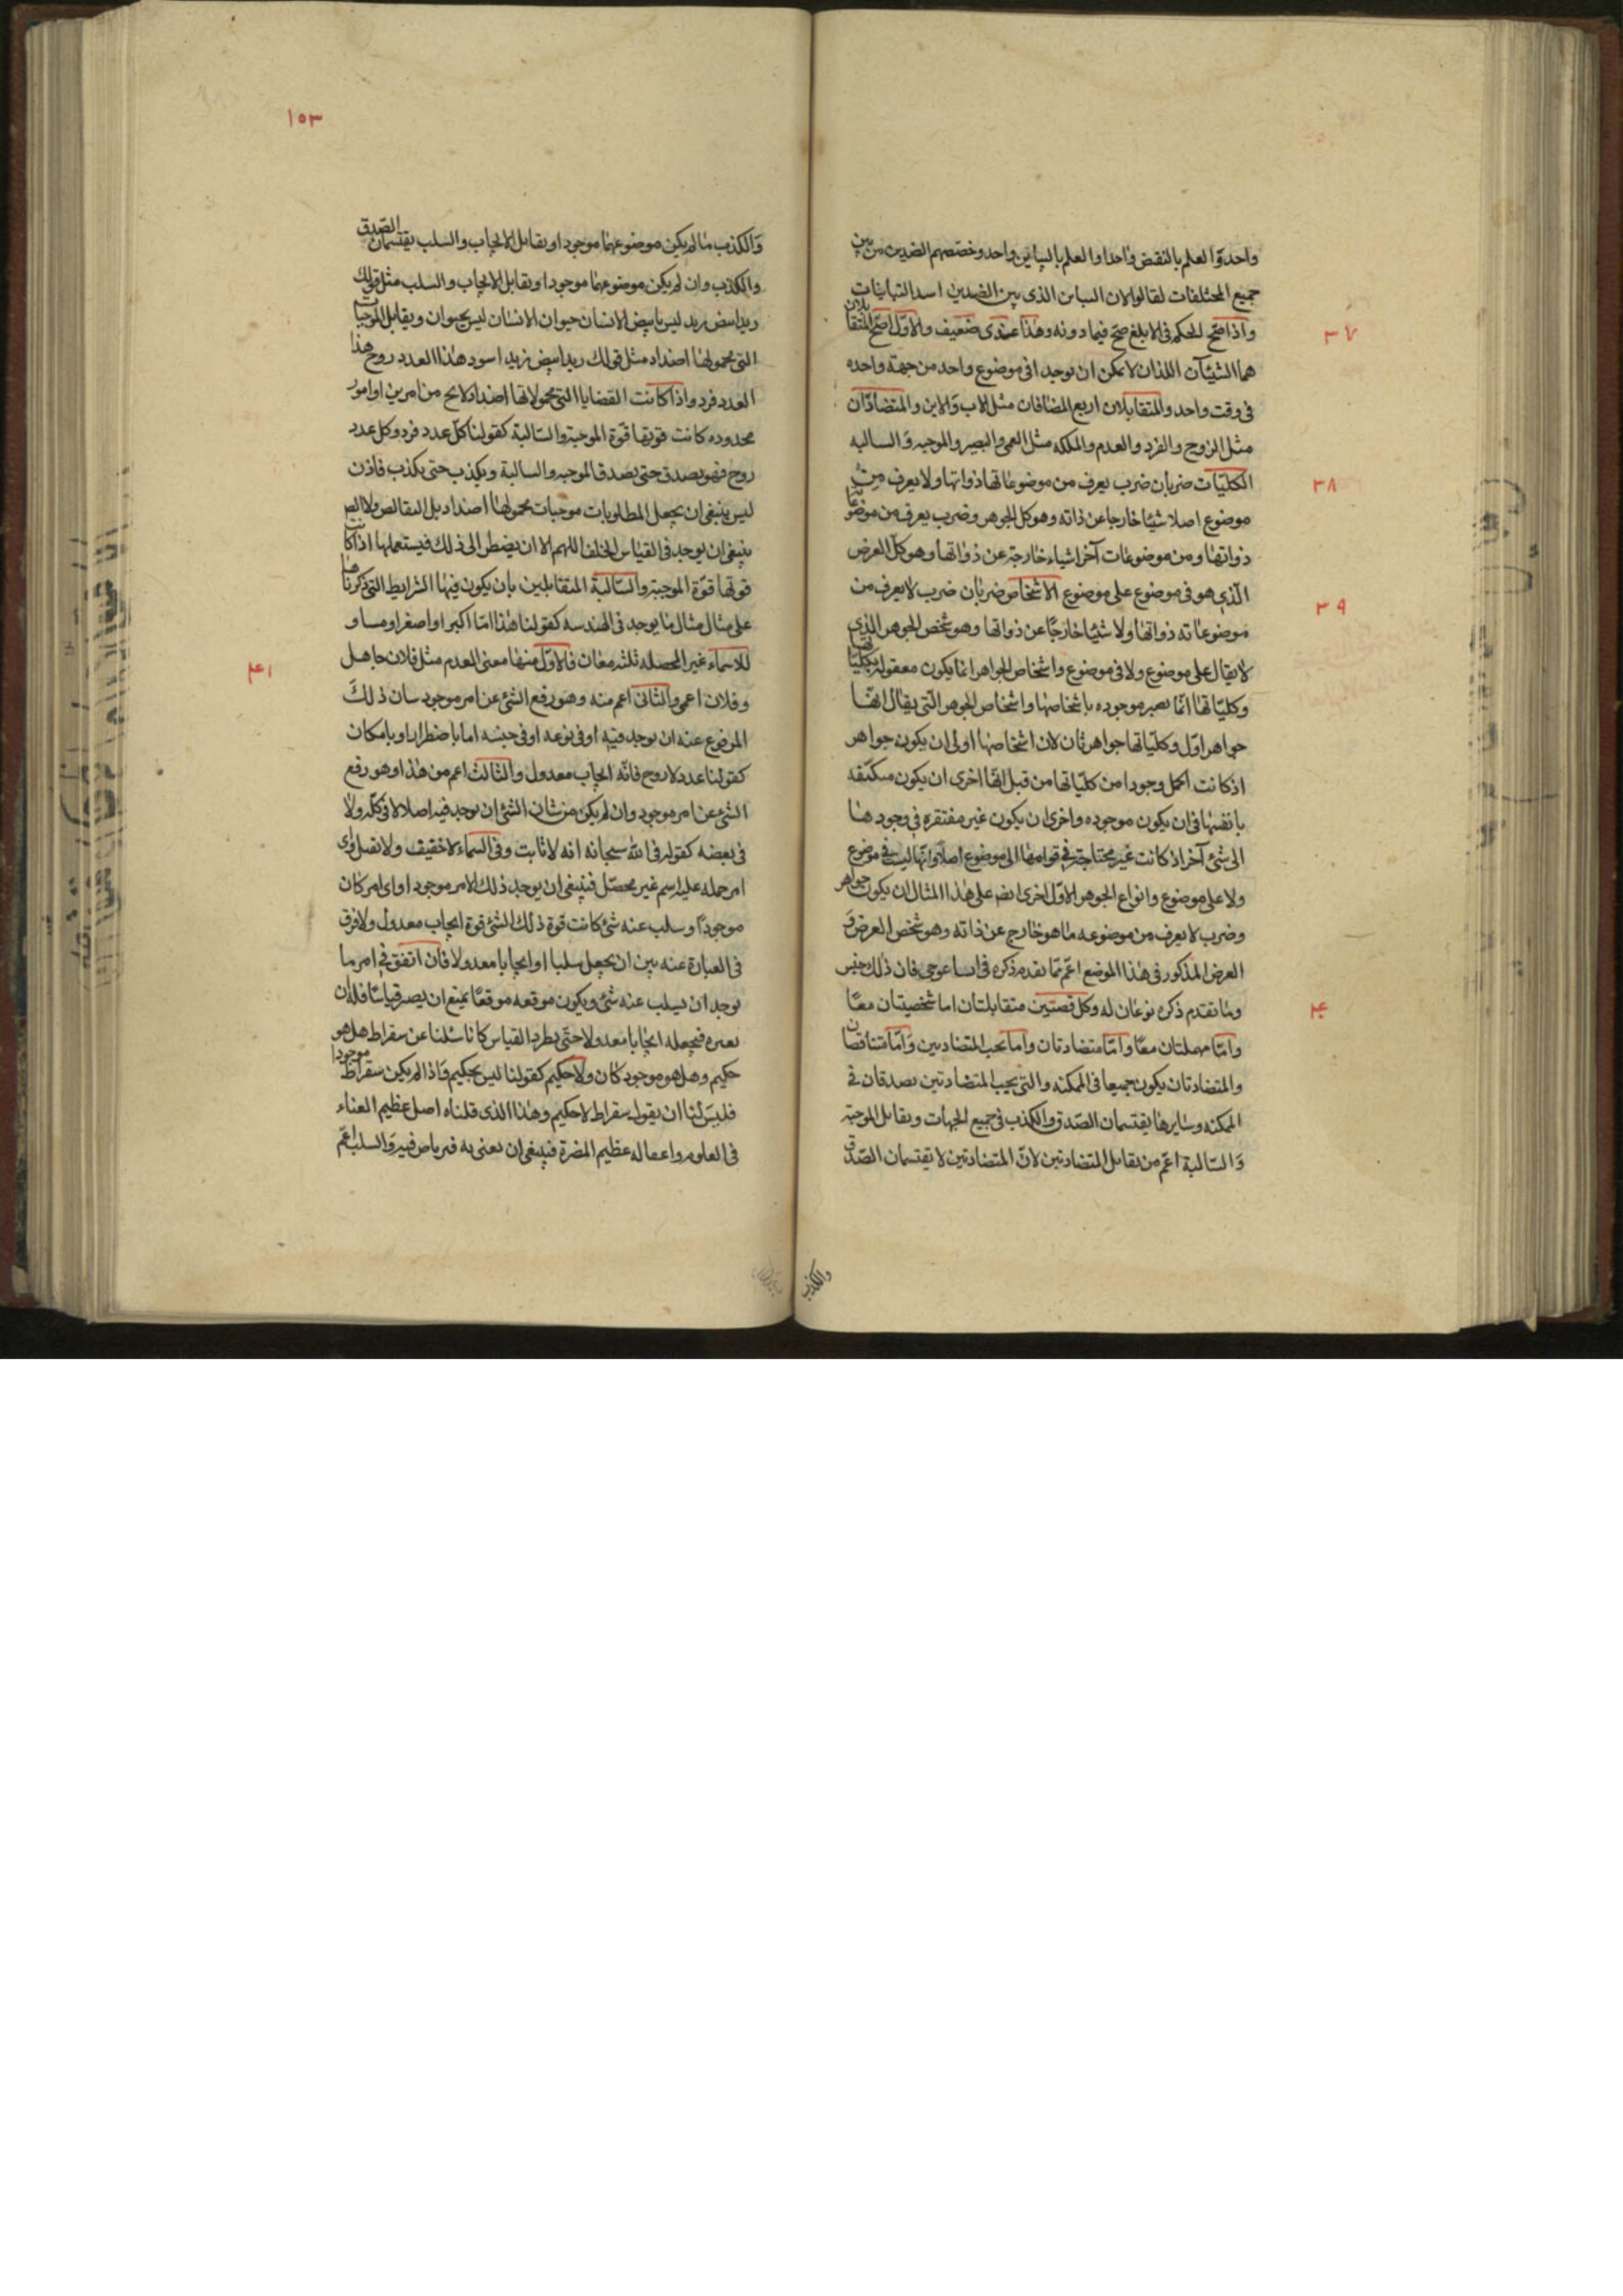 واحد والعلم بالنقيض واحدا والعلم بالبياين واحد وخصصهم الضدين من بين
جميع المختلفات لقالوا لان التباين الذى بين الضدين اشد التباينات
٣٧
واذا صح الحكم فى الابلغ صح فيما دونه وهذا عندى ضعيف والاول اصح المتقابلان
هما الشيئآن اللذان لا يمكن ان توجدا فى موضوع واحد من جهة واحده
فى وقت واحد والمتقابلان اربع المضافان مثل الاب والابن والمتضادّان
مثل الزوج والفرد والعدم والملكه مثل العمى والبصير والموجبه والسالبه
٣٨
الكليّات ضربان ضرب يعرف من موضوعاتها ذواتها ولا يعرف من
موضوع اصلا شيئا خارجا عن ذاته وهو كل الجوهر وضرب يعرف من موضوعا
ذواتها ومن موضوعات آخر اشياء خارجة عن ذواتها وهو كل العرض
٣٩
الذى هو فى موضوع على موضوع الاشخاص ضربان ضرب لا يعرف من
موضوعاته ذواتها ولا شيئا خارجًا عن ذواتها وهو شخص الجوهر الذى
لا يقال على موضوع ولا فى موضوع واشخاص الجواهر انما يكون معقوله بكليّاتها
وكليّاتها انّما يصير موجوده باشخاصها واشخاص الجوهر التى يقال انها
جواهر اوّل وكليّاتها جواهر ثان لان اشخاصها اولى ان يكون جواهر
اذ كانت اكمل وجودا من كلّياتها من قبل انّها احرى ان يكون مكتفيه
بانفسها فى ان يكون موجوده واحرى ان يكون غير مفتقره فى وجودها
الى شئ آخر اذ كانت غير محتاجة فى قوامها الى موضوع اصلا وانّها ليست فى موضوع
ولا على موضوع وانواع الجوهر الاوّل احرى ايضا على هذا المثال ان يكون جواهر
وضرب لا يعرف من موضوعه ما هو خارج عن ذاته وهو شخص العرض و
العرض المذكور فى هذا الموضع اعمّ ممّا تقدم ذكره فى ايساغوجى فان ذلك جنس
٤٠
وما تقدم ذكره نوعان له وكل قضيّتين متقابلتان اما شخصيتان معًا
وامّا مهملتان معًا وامّا متضادتان واما تحت المتضادتين وامّا متناقضان
والمتضادتان يكون جميعا فى الممكنه والتى تحت المتضادتين يصدقان فى
الممكنه وسايرها يقتسمان الصّدق والكذب فى جميع الجهات وتقابل الموجبة
والسّالبة اعمّ من تقابل المتضادتين لانّ المتضادتين لا تقتسمان الصّدق
والكذب
١٥٣
والكذب ما لم يكن موضوعهما موجودا وتقابل الايجاب والسلب يقتسمان الصّدق
والكذب وان لم يكن موضوعهما موجودا وتقابل الايجاب والسلب مثل قولك
زيد ابيض زيد ليس بابيض الانسان حيوان الانسان ليس بحيوان وتقابل الموجبات
التى محمولها اضداد مثل قولك زيد ابيض زيد اسود هذا العدد زوج هذا
العدد فرد واذا كانت القضايا التى محمولاتها اضداد لا يخ من امرين او امور
محدوده كانت قوتها قوّة الموجبة والسّالبة كقولنا كلّ عدد فرد وكل عدد
زوج فهو يصدق حتى يصدق الموجبه والسالبة ويكذب حتى يكذب فاذن
ليس ينبغى ان يجعل المطلوبات موجبات محمولها اضداد بل النقائص ولا
ينبغى ان يوجد فى القياس الخلف اللهم الا ان يضطر الى ذلك فيستعملها اذا كانت
قوتها قوّة الموجبة والسّالبة المتقابلين بان يكون فيها الشرايط التى ذكرناها
على مثال ما يوجد فى الهندسه كقولنا هذا امّا اكبر او اصغر او مساو
٤١
للاسماء غير المحصله ثلثه معان فالاوّل منها معنى العدم مثل فلان جاهل
وفلان اعمى والثانى اعم منه وهو رفع الشئ عن امر موجود شان ذلك
المرفوع عنه ان يوجد فيه او فى نوعه او فى جنسه اما باضطرار او بامكان
كقولنا عدد لا زوج فانّه ايجاب معدول والثالث اعم من هذا وهو رفع
الشئ عن امر موجود وان لم يكن من شان الشئ ان يوجد فيه اصلا لا فى كلّه ولا
فى بعضه كقوله فى الله سبحانه انه لا ثابت وفى السماء لا خفيف ولا ثقيل واى
امر حمله عليه اسم غير محصّل فينبغى ان يوجد ذلك الامر موجودا واى امر كان
موجودًا وسلب عنه شئ كانت قوة ذلك الشئ قوة ايجاب معدول ولا فرق
فى العبارة عنه بين ان يجعل سلبا او ايجابا معدولا فان اتفق فى امر ما
يوجد ان يسلب عنه شئ ويكون موقعه موقعًا يمنع ان يصير قياسًا فله ان
يغيره فيجعله ايجابا معدولا حتى يطرد القياس كانا سئلنا عن سقراط هل هو
حكيم وهل هو موجود كان ولا حكيم كقولنا ليس بحكيم واذا لم يكن سقراط موجودا
فليس لنا ان يقول سقراط لا حكيم وهذا الذى قلناه اصل عظيم الغناء
فى العلوم واغفاله عظيم المضرة فينبغى ان نعنى به فيرتاض فيه والسلب اعّم